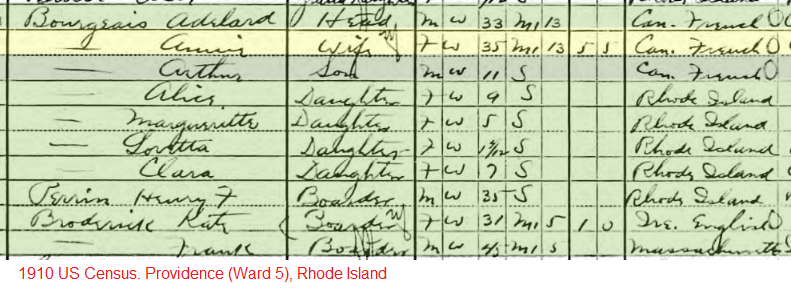 Bourgeais Adelard Head M W 33 M1 13 Can. French O
— Annie Wife F W 35 M1 13 5 5 Can. French O
— Arthur Son M W 11 S Can. French O
— Alice Daughter F W 9 S Rhode Island
— Margueritte Daughter F W 5 S Rhode Island
— Loretta Daughter F W S Rhode Island
— Clara Daughter F W 7 S Rhode Island
Perrin Henry F Boarder M W 35 S Rhode Island
Broderick Kate Boarder F W 31 M1 5 1 0 Ire. English O
— Frank Boarder M W M1 5 Massachusetts
1910 US Census. Providence (Ward 5), Rhode Island